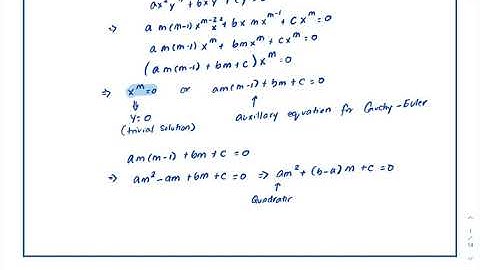 ax²y'' + bxy' + cy = 0
⇒ a m(m-1) x^{m-2} x² + b x m x^{m-1} + c x^m = 0
a m(m-1) x^m + bm x^m + c x^m = 0
(a m(m-1) + bm + c) x^m = 0
⇒ x^m = 0 or am(m-1) + bm + c = 0
y = 0
(trivial solution)
auxillary equation for Cauchy-Euler
am(m-1) + bm + c = 0
⇒ am² - am + bm + c = 0 ⇒ am² + (b-a)m + c = 0
Quadratic